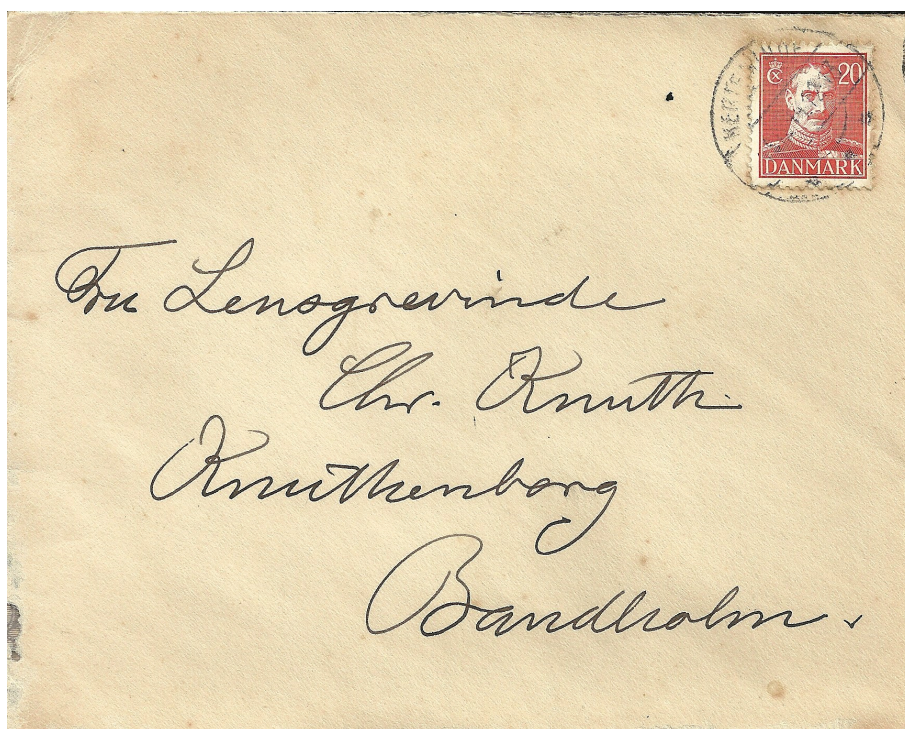 20
DANMARK
Fru Lensgrevinde
Chr. Knuth.
Knuthenborg
Bandholm.